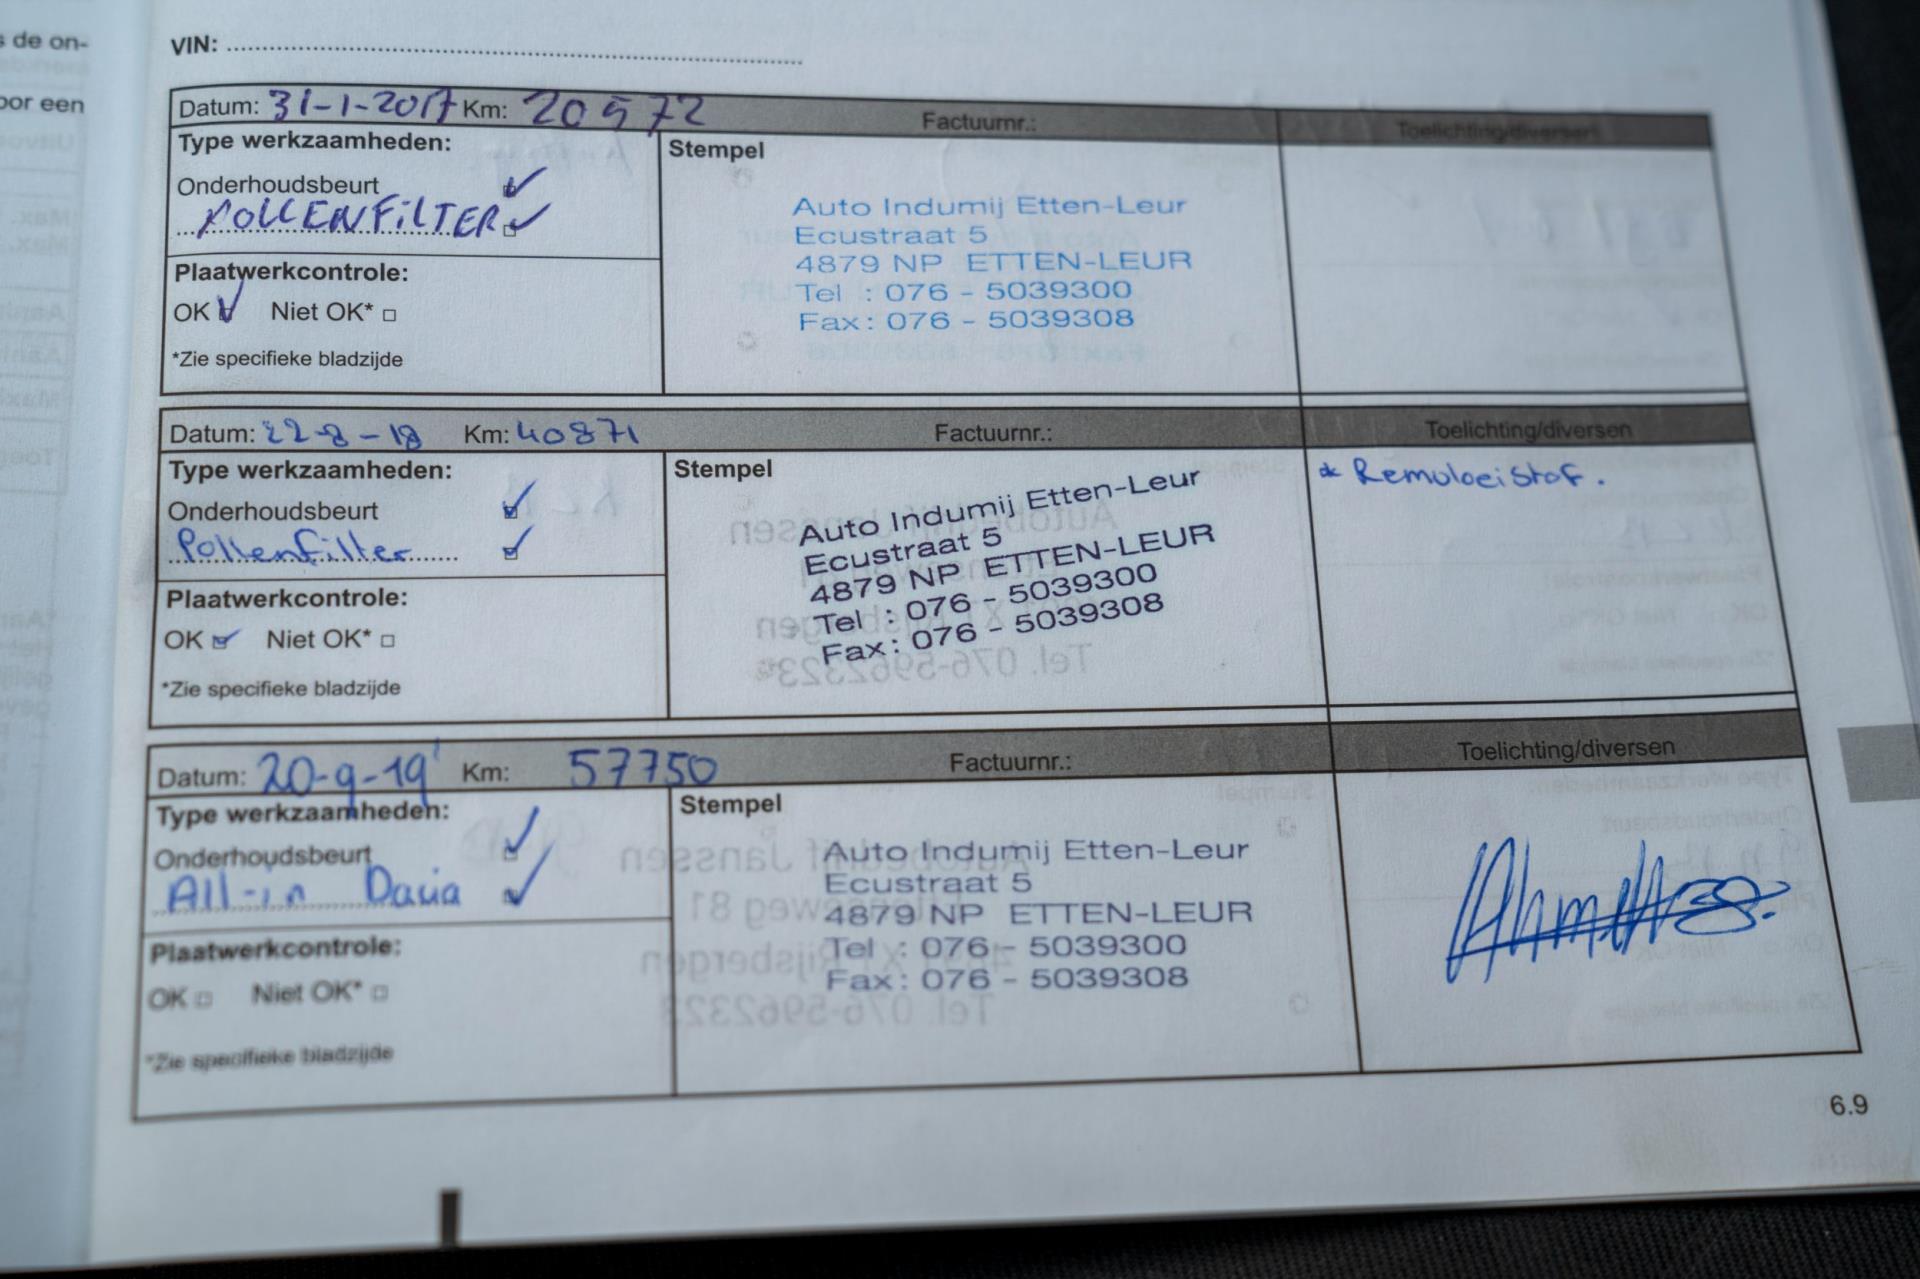 s de on-
oor een
VIN:
Datum: 31-1-2017 Km: 20572 Factuurnr.: Toelichting/diversen
Type werkzaamheden:
Stempel
Onderhoudsbeurt
POLLENFILTER
Plaatwerkcontrole:
OK Niet OK*
*Zie specifieke bladzijde
Auto Indumij Etten-Leur
Ecustraat 5
4879 NP ETTEN-LEUR
Tel : 076 - 5039300
Fax: 076 - 5039308
Datum: 22-8-18 Km: 40871 Factuurnr.: Toelichting/diversen
Type werkzaamheden:
Stempel
Onderhoudsbeurt
Pollenfilter
Plaatwerkcontrole:
OK Niet OK*
*Zie specifieke bladzijde
Auto Indumij Etten-Leur
Ecustraat 5
4879 NP ETTEN-LEUR
Tel : 076 - 5039300
Fax: 076 - 5039308
* Remvloeistof.
Datum: 20-9-19' Km: 57750 Factuurnr.: Toelichting/diversen
Type werkzaamheden:
Stempel
Onderhoudsbeurt
All-in Dacia
Plaatwerkcontrole:
OK Niet OK*
*Zie specifieke bladzijde
Auto Indumij Etten-Leur
Ecustraat 5
4879 NP ETTEN-LEUR
Tel : 076 - 5039300
Fax: 076 - 5039308
6.9